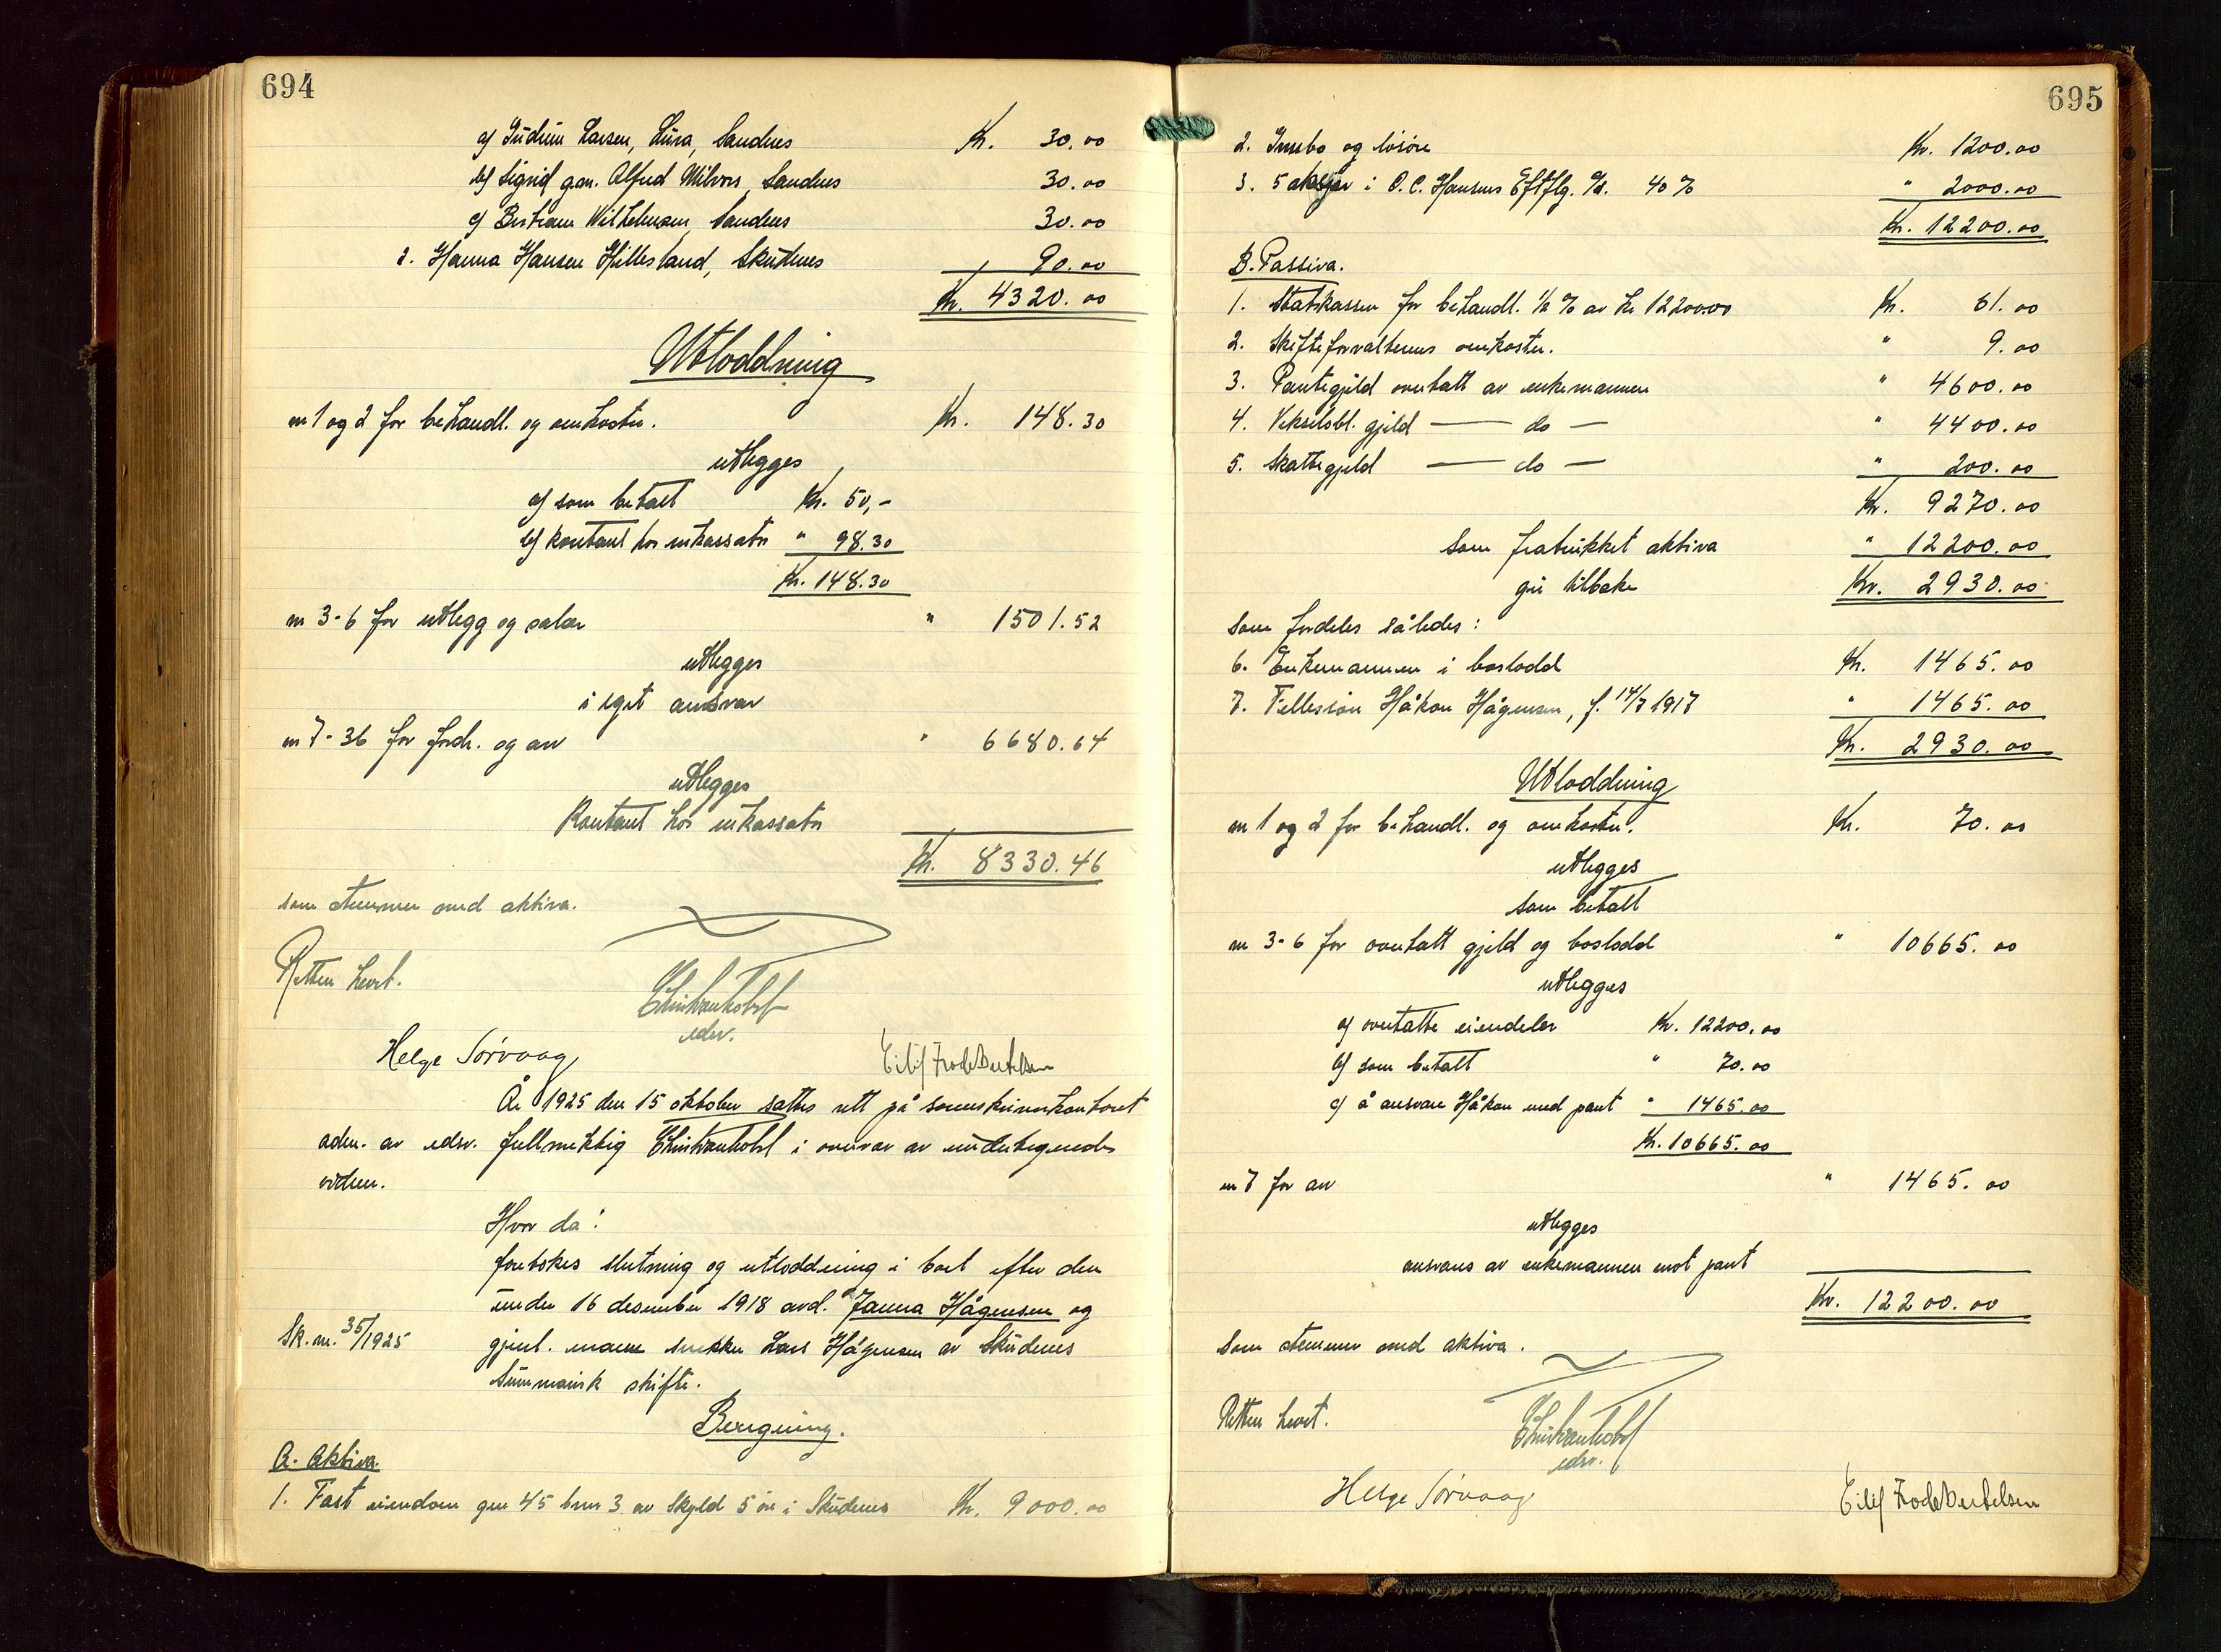 694
a) Gudrun Larsen, Lura, Sandnes Kr. 30.00
b) Sigrid g.m. Alfred Sandnes 30.00
c) Bertram Wilhelmsen, Sandnes 30.00
2. Hanna Hansen Hillesland, Skudenes 90.00
Kr. 4320.00
Utloddning
nr 1 og 2 for behandl. og omkostn. Kr. 148.30
utlegges
a) som betalt Kr. 50,-
b) kontant hos inkassator " 98.30
Kr. 148.30
nr 3-6 for utlegg og salær " 1501.52
utlegges
i eget ansvar
nr 7-36 for fordr. og arv " 6680.64
utlegges
Kontant hos inkassator
Kr. 8330.46
som stemmer med aktiva.
Retten hevet.
edsv.
Helge Sørvaag Eilif Frode Bertelsen
År 1925 den 15 oktober sattes rett på sorenskriverkontoret
adm. av edsv. fullmektig i overvær av undertegnede
vidner.
Hvor da:
foretokes slutning og utloddning i boet efter den
under 16 desember 1918 avd. Janna Hågensen og
Sk. nr. 35/1925 gjenl. mann snekker Lars Hågensen av Skudenes
Summarisk skifte.
Beregning.
A. Aktiva.
1. Fast eiendom gnr 45 bnr 3 av skyld 5 øre i Skudenes Kr. 9000.00
695
2. Innbo og løsøre Kr. 1200.00
3. 5 aksjer i O.C. Hansens Eftflg. A/s. 40 % " 2000.00
Kr. 12200.00
B. Passiva.
1. Statskassen for behandl. ½ % av kr 12200.00 Kr. 61.00
2. Skifteforvalterens omkostn. " 9.00
3. Pantegjeld overtatt av enkemannen " 4600.00
4. Vekselobl. gjeld — do — " 4400.00
5. Skattegjeld — do — " 200.00
Kr. 9270.00
som fratrukket aktiva " 12200.00
gir tilbake Kr. 2930.00
som fordeles således:
6. Enkemannen i boslodd Kr. 1465.00
7. Fellessøn Håkon Hågensen, f. 14/7 1917 " 1465.00
Kr. 2930.00
Utloddning
nr 1 og 2 for behandl. og omkostn. Kr. 70.00
utlegges
som betalt
nr 3-6 for overtatt gjeld og boslodd " 10665.00
utlegges
a) overtatte eiendeler Kr. 12200.00
b) som betalt " 70.00
c) å ansvare Håkon med pant " 1465.00
Kr. 10665.00
nr 7 for arv " 1465.00
utlegges
ansvares av enkemannen mot pant
Kr. 12200.00
som stemmer med aktiva.
Retten hevet.
edsv.
Helge Sørvaag Eilif Frode Bertelsen